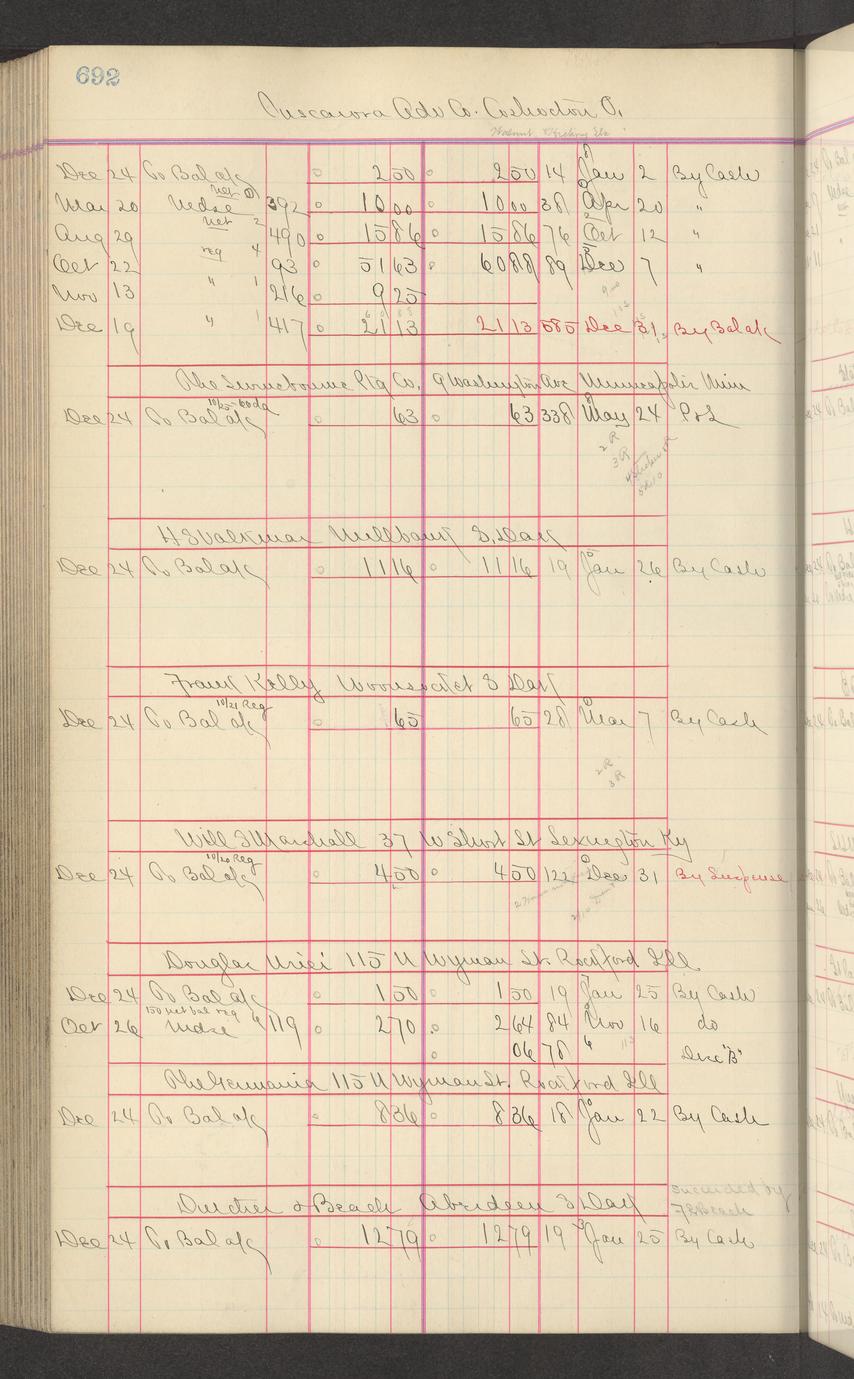 692
Tuscarora Adv Co. Coshocton O.
Dec 24 To Bal a/c 2 50 2 50 14 Jan 2 By Cash
Mar 20 Mdse net 392 10 00 10 00 38 Apr 20 "
Aug 29 net 2 490 15 86 15 86 76 Oct 12 "
Oct 22 reg 4 93 51 63 60 88 89 Dec 7 "
Nov 13 " 1 216 9 25
Dec 19 " 1 417 21 13 21 13 585 Dec 31 By Bal a/c
The Swinebourne Ptg Co. 9 Washington Ave Minneapolis Minn
10/25-60da
Dec 24 To Bal a/c 63 63 338 May 24 P&L
2 R
3 R
H S Valkmar Millbank S. Dak
Dec 24 To Bal a/c 11 16 11 16 19 Jan 26 By Cash
Frank Kelly Woonsocket S Dak
10/21 Reg
Dec 24 To Bal a/c 65 65 28 Mar 7 By Cash
2 R
3 R
Will S Marshall 37 W Short St Lexington Ky
10/20 Reg
Dec 24 To Bal a/c 4 50 4 50 122 Dec 31 By Suspense
Douglas 115 N Wyman St. Rockford Ill
Dec 24 To Bal a/c 1 50 1 50 19 Jan 25 By Cash
150 net bal reg
Oct 26 Mdse 6 119 2 70 2 64 84 Nov 16 do
06 78 " Disc "B"
The Germania 115 N Wyman St. Rockford Ill
Dec 24 To Bal a/c 8 36 8 36 18 Jan 22 By Cash
Dutcher & Beach Aberdeen S Dak succeeded by
F B Beach
Dec 24 To Bal a/c 12 79 12 79 19 Jan 25 By Cash